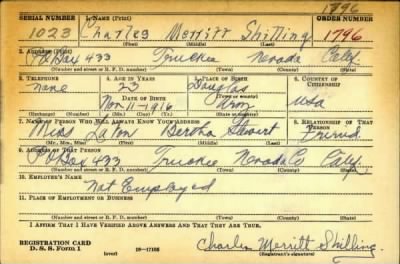 1796
SERIAL NUMBER 1. NAME (Print) ORDER NUMBER
1023 Charles Merritt Shilling 1796
(First) (Middle) (Last)
2. ADDRESS (Print)
P.O Box 433 Truckee Nevada Caly.
(Number and street or R. F. D. number) (Town) (County) (State)
3. TELEPHONE 4. AGE IN YEARS 5. PLACE OF BIRTH 6. COUNTRY OF CITIZENSHIP
none 23 Douglas
DATE OF BIRTH
Nov 11-1916 Arm USA
(Exchange) (No.) (Mo.) (Day) (Yr.) (State or country)
7. NAME OF PERSON WHO WILL ALWAYS KNOW YOUR ADDRESS 8. RELATIONSHIP OF THAT PERSON
Miss LaVon Bertha Stewart Friend
(Mr., Mrs., Miss) (First) (Middle) (Last)
9. ADDRESS OF THAT PERSON
P.O Box 433 Truckee Nevada Co Caly.
(Number and street or R. F. D. number) (Town) (County) (State)
10. EMPLOYER'S NAME
Not Employed
11. PLACE OF EMPLOYMENT OR BUSINESS
(Number and street or R. F. D. number) (Town) (County) (State)
I AFFIRM THAT I HAVE VERIFIED ABOVE ANSWERS AND THAT THEY ARE TRUE.
REGISTRATION CARD
D. S. S. FORM 1 16-17105
(over)
Charles Merritt Shilling
(Registrant's signature)